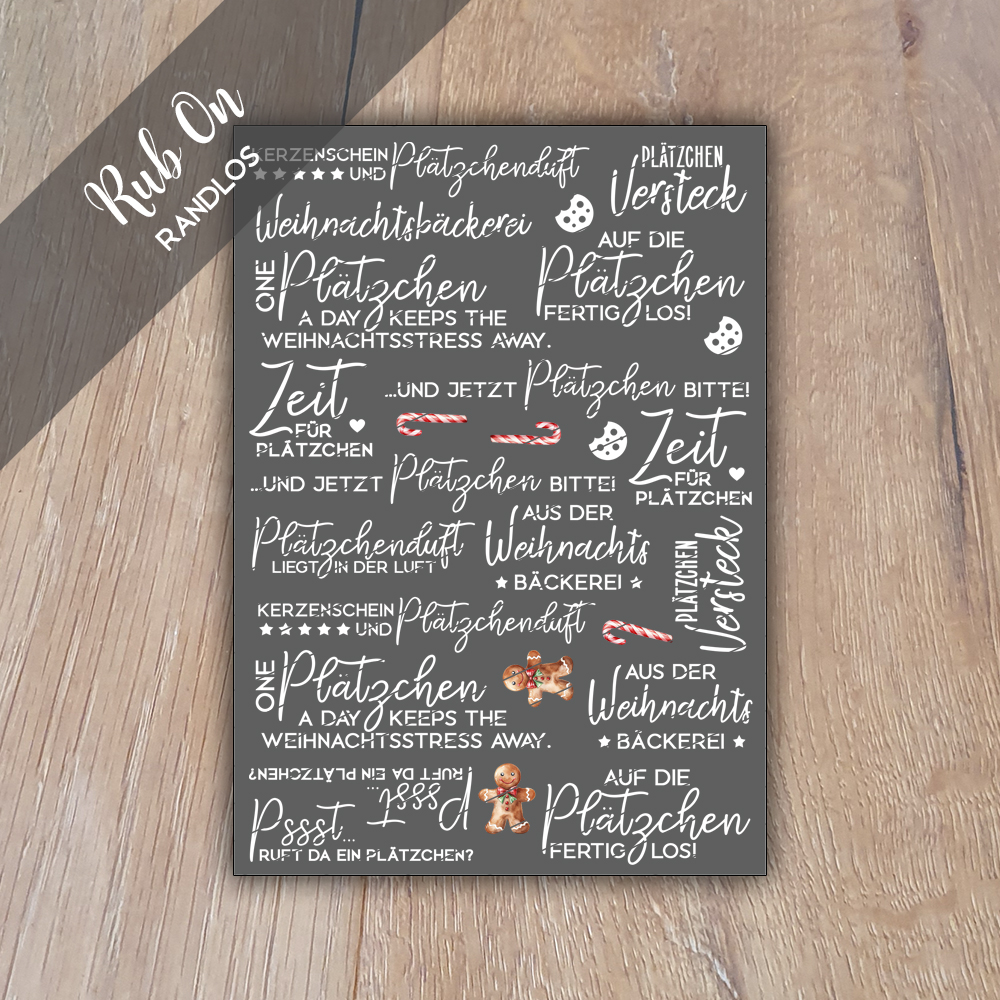 Rub On
RANDLOS
KERZENSCHEIN
UND Plätzchenduft
PLÄTZCHEN
Versteck
Weihnachtsbäckerei
ONE Plätzchen
A DAY KEEPS THE
WEIHNACHTSSTRESS AWAY.
AUF DIE
Plätzchen
FERTIG LOS!
Zeit
FÜR
PLÄTZCHEN
...UND JETZT Plätzchen BITTE!
Zeit
FÜR
PLÄTZCHEN
...UND JETZT Plätzchen BITTE!
Plätzchenduft
LIEGT IN DER LUFT
AUS DER
Weihnachts
BÄCKEREI
PLÄTZCHEN
Versteck
KERZENSCHEIN
UND Plätzchenduft
ONE Plätzchen
A DAY KEEPS THE
WEIHNACHTSSTRESS AWAY.
AUS DER
Weihnachts
BÄCKEREI
Pssst...
RUFT DA EIN PLÄTZCHEN?
Pssst...
RUFT DA EIN PLÄTZCHEN?
AUF DIE
Plätzchen
FERTIG LOS!